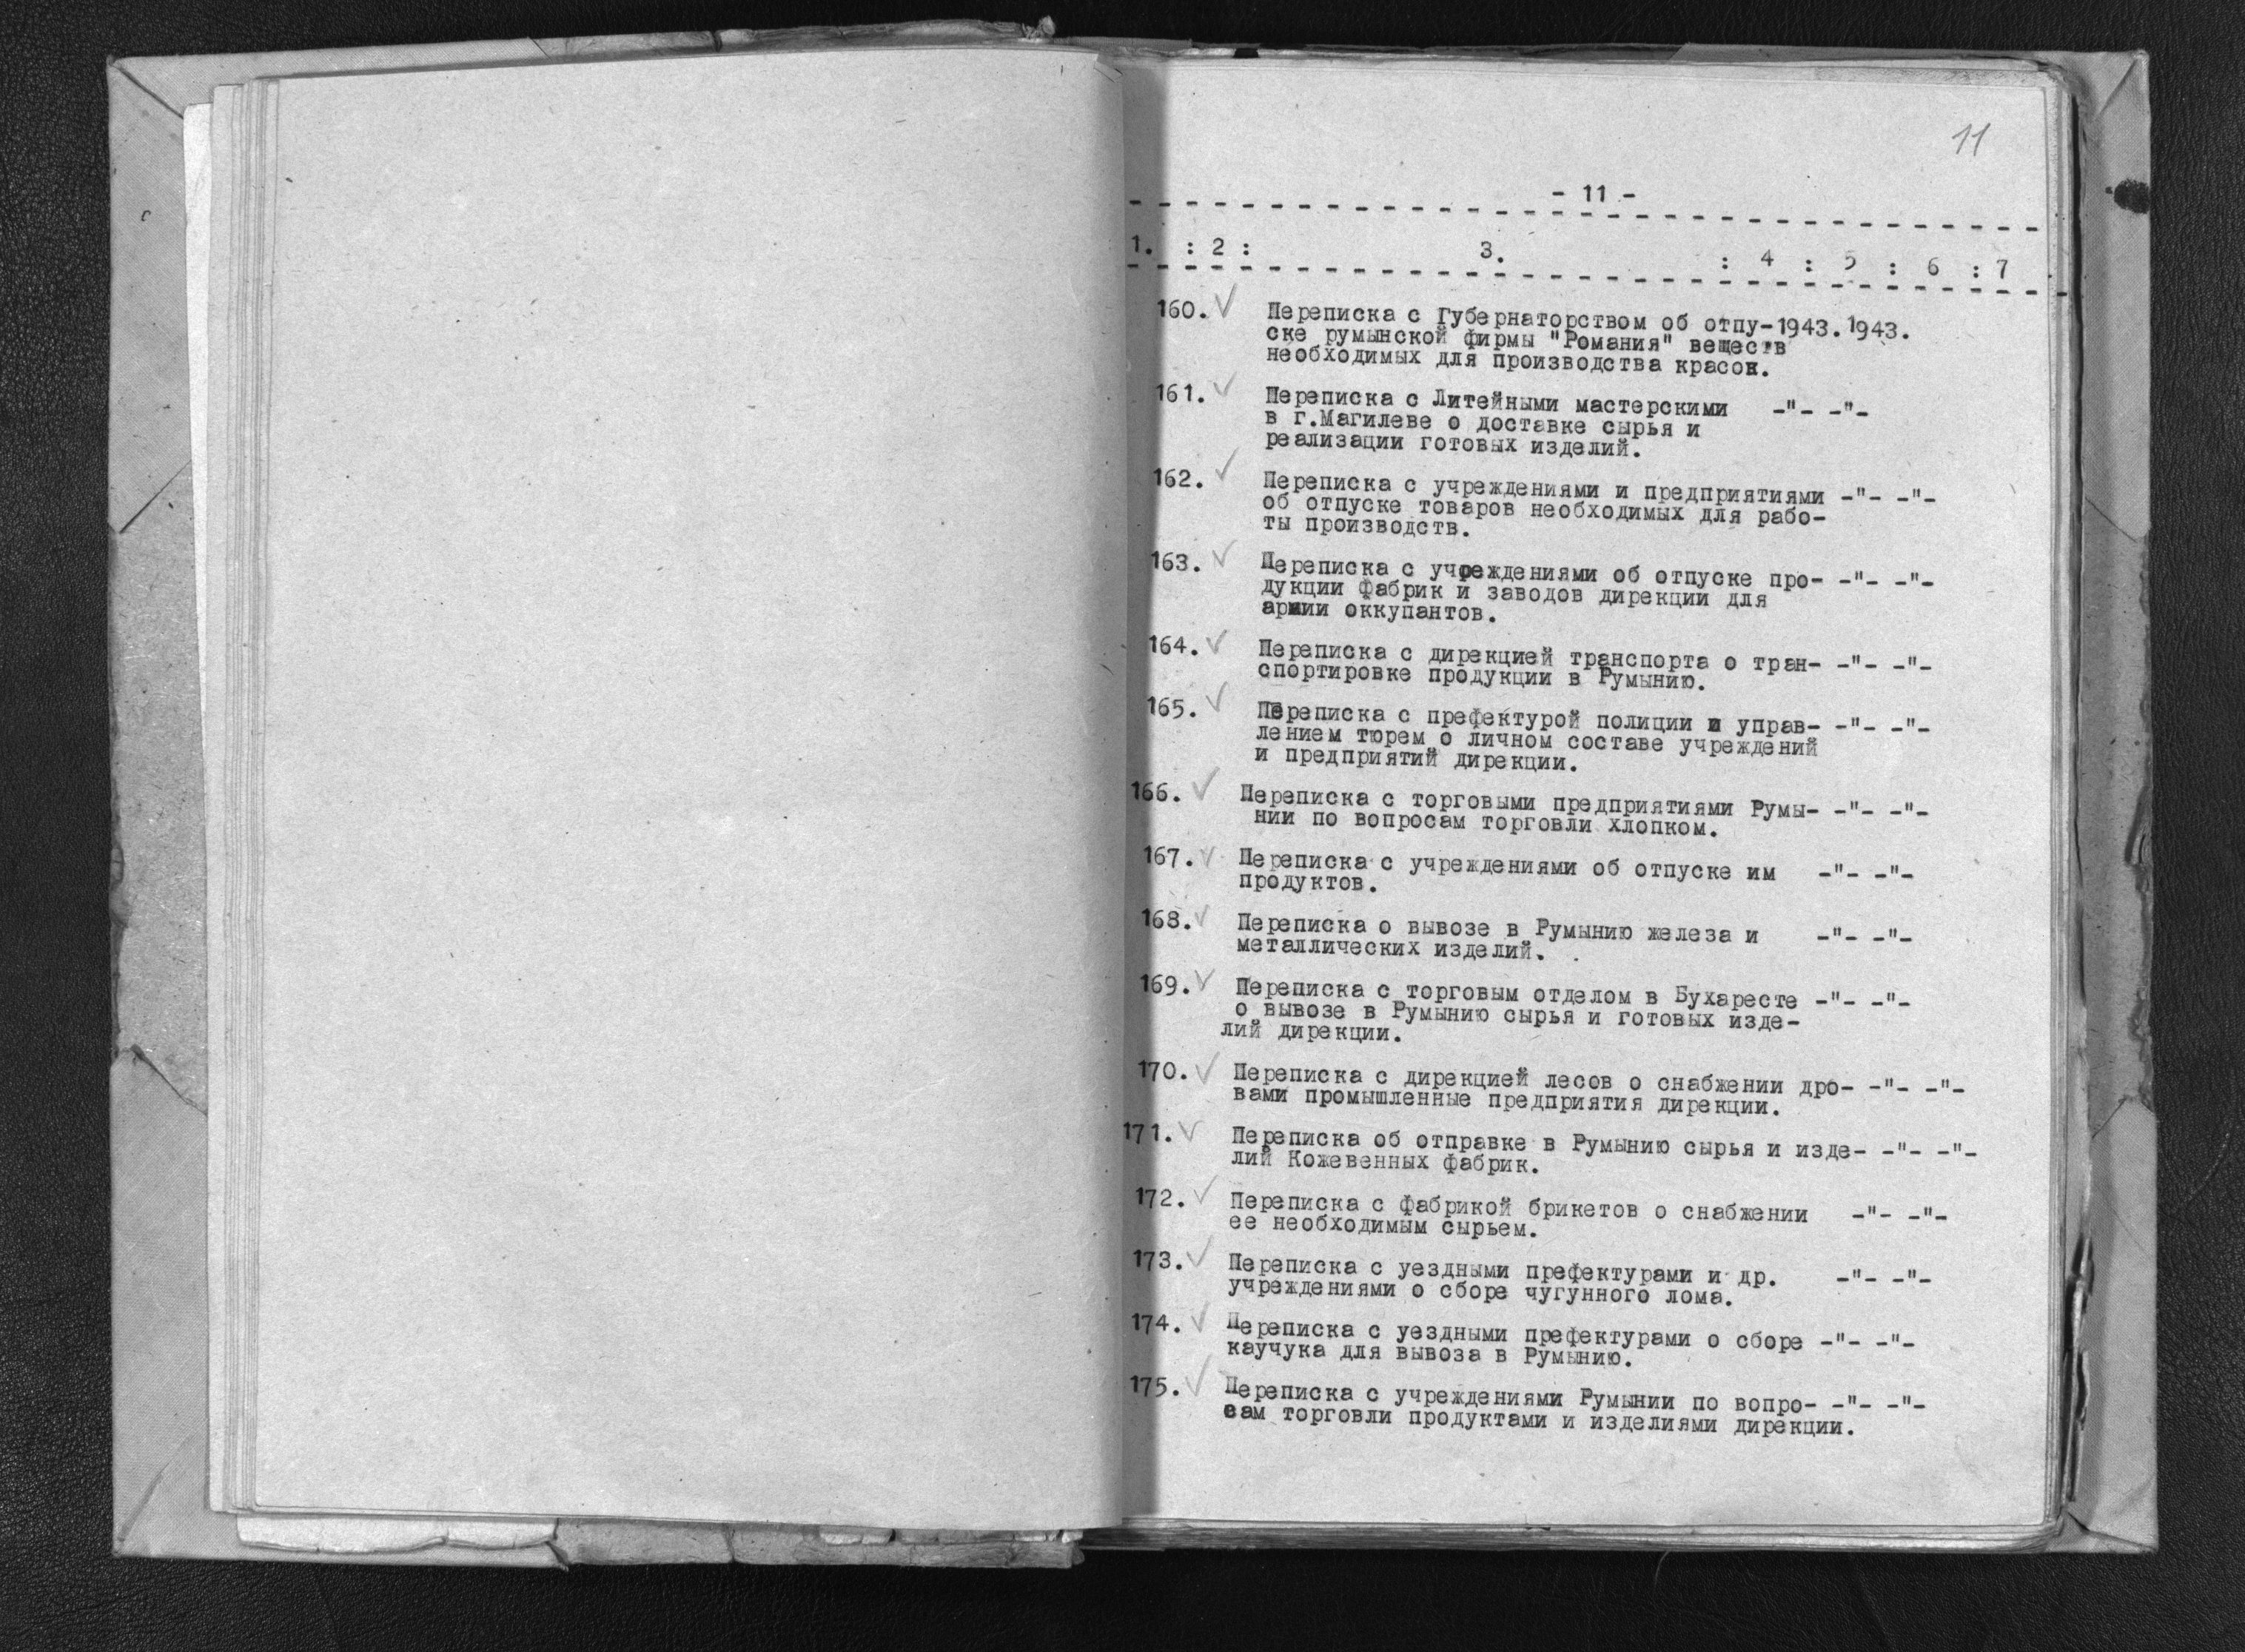 11
- 11 -
1. : 2 : 3. : 4 : 5 : 6 : 7
160. ✓ Переписка с Губернаторством об отпу-1943.1943.
ске румынской фирмы "Романия" веществ
необходимых для производства красок.
161. ✓ Переписка с Литейными мастерскими -"- -"-
в г.Магилеве о доставке сырья и
реализации готовых изделий.
162. ✓ Переписка с учреждениями и предприятиями -"- -"-
об отпуске товаров необходимых для рабо-
ты производств.
163. ✓ Переписка с учреждениями об отпуске про- -"- -"-
дукции фабрик и заводов дирекции для
армии оккупантов.
164. ✓ Переписка с дирекцией транспорта о тран- -"- -"-
спортировке продукции в Румынию.
165. ✓ Переписка с префектурой полиции и управ- -"- -"-
лением тюрем о личном составе учреждений
и предприятий дирекции.
166. ✓ Переписка с торговыми предприятиями Румы- -"- -"-
нии по вопросам торговли хлопком.
167. ✓ Переписка с учреждениями об отпуске им -"- -"-
продуктов.
168. ✓ Переписка о вывозе в Румынию железа и -"- -"-
металлических изделий.
169. ✓ Переписка с торговым отделом в Бухаресте -"- -"-
о вывозе в Румынию сырья и готовых изде-
лий дирекции.
170. ✓ Переписка с дирекцией лесов о снабжении дро- -"- -"-
вами промышленные предприятия дирекции.
171. ✓ Переписка об отправке в Румынию сырья и изде- -"- -"-
лий Кожевенных фабрик.
172. ✓ Переписка с фабрикой брикетов о снабжении -"- -"-
ее необходимым сырьем.
173. ✓ Переписка с уездными префектурами и др. -"- -"-
учреждениями о сборе чугунного лома.
174. ✓ Переписка с уездными префектурами о сборе -"- -"-
каучука для вывоза в Румынию.
175. ✓ Переписка с учреждениями Румынии по вопро- -"- -"-
сам торговли продуктами и изделиями дирекции.